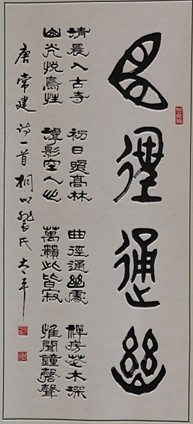 曲徑通幽
清晨入古寺 初日照高林 曲徑通幽處 禪房花木深
山光悅鳥性 潭影空人心 萬籟此皆寂 惟聞鐘磬聲
唐常建詩一首 桐